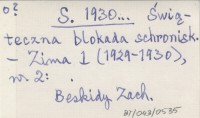 o?
S. 1930... Świą-
teczna blokada schronisk.
- Zima 1 (1929-1930),
nr 2: .
Beskidy Zach.